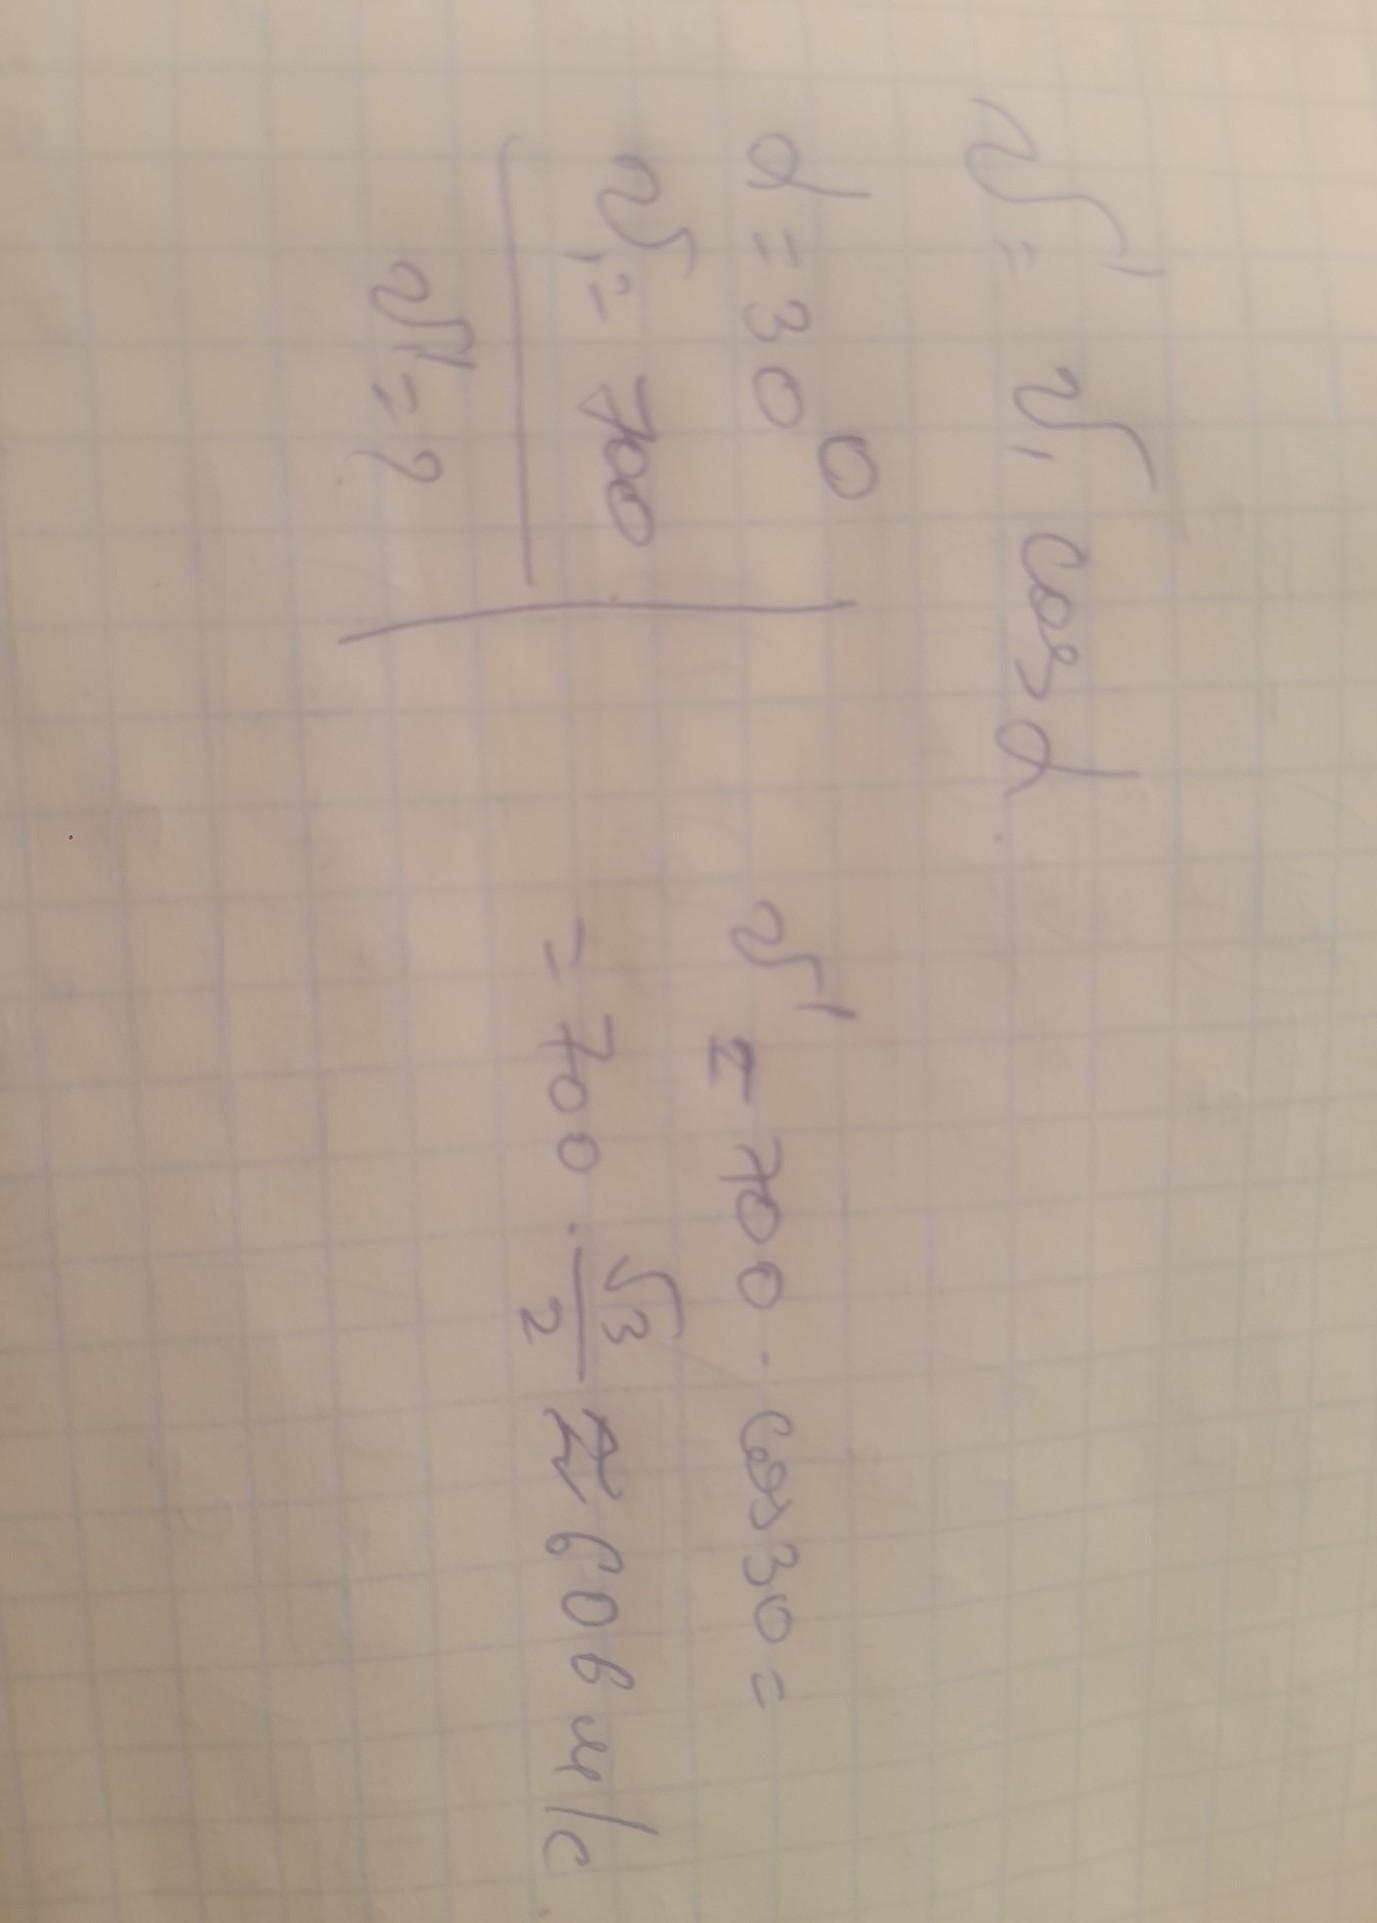 v' = v₁ cos α
α = 30°
v₁ = 700
v' = ?
v' = 700 · cos 30 =
= 700 · √3/2 ≈ 606 м/с